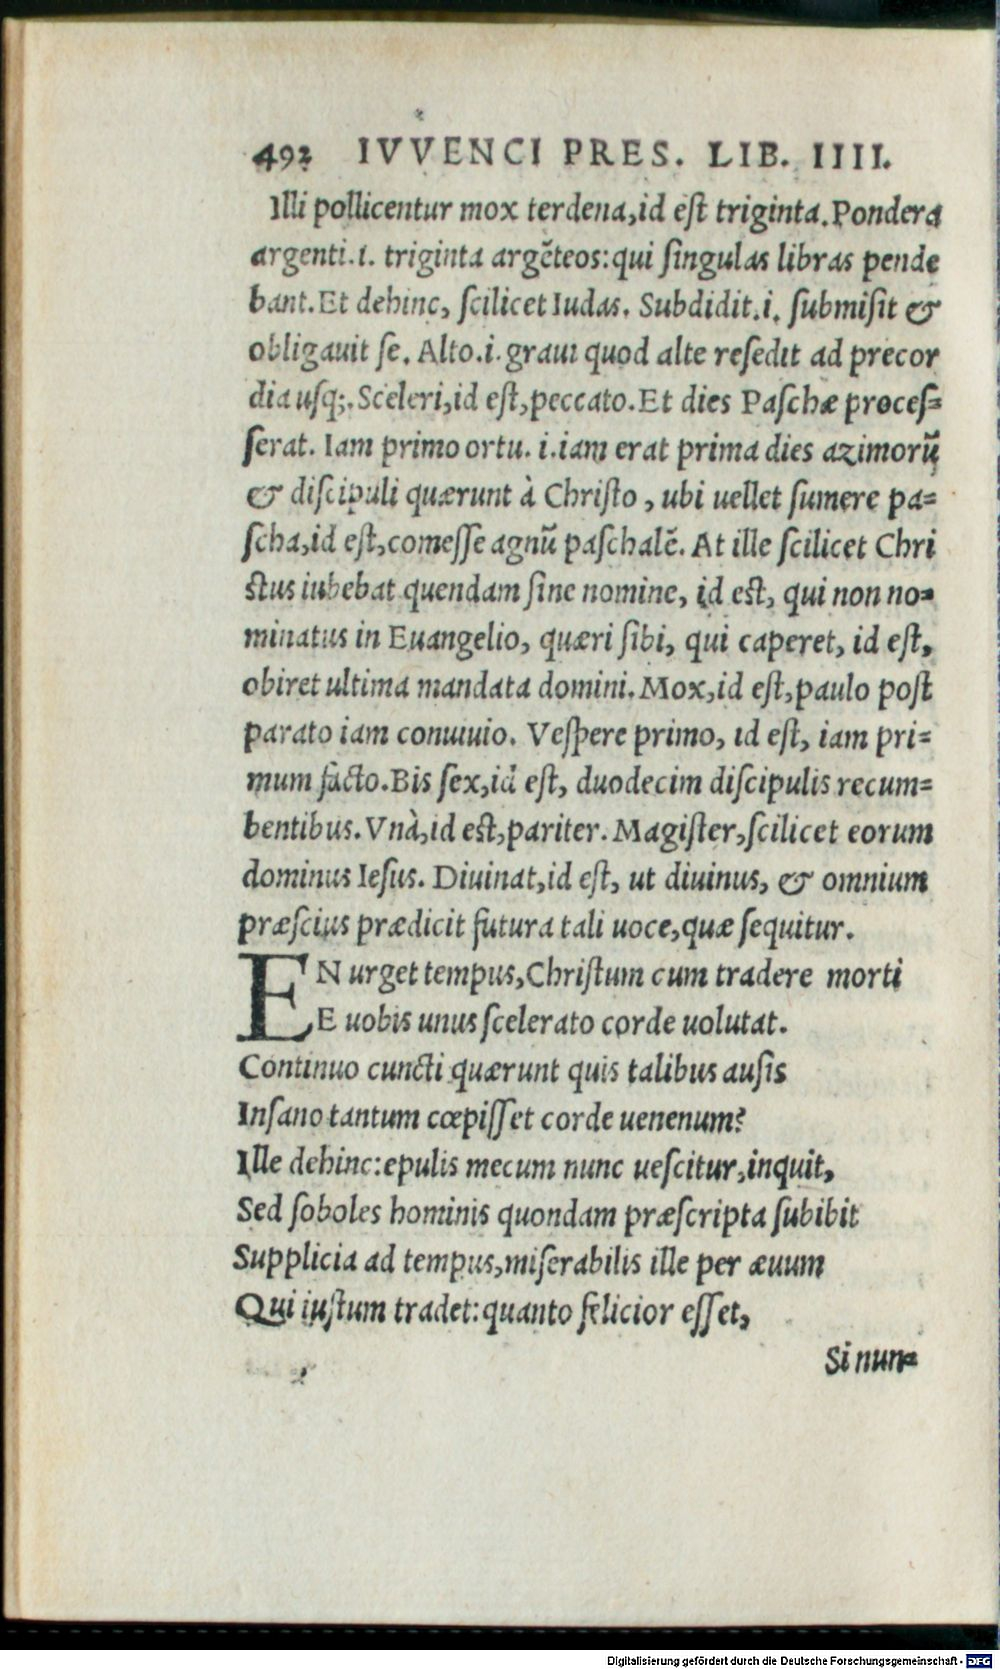 492 IVVENCI PRES. LIB. IIII.
Illi pollicentur mox terdena,id eſt triginta.Pondera
argenti.i. triginta argẽteos:qui ſingulas libras pende
bant.Et dehinc, ſcilicet Iudas. Subdidit.i. ſubmiſit &
obligauit ſe. Alto.i.graui quod alte reſedit ad precor
dia uſq;.Sceleri,id eſt,peccato.Et dies Paſchæ proceſ=
ſerat. Iam primo ortu. i.iam erat prima dies azimorũ
& diſcipuli quærunt à Chriſto , ubi uellet ſumere pa=
ſcha,id eſt,comeſſe agnũ paſchalẽ. At ille ſcilicet Chri
ſtus iubebat quendam ſine nomine, id eſt, qui non no=
minatus in Euangelio, quæri ſibi, qui caperet, id eſt,
obiret ultima mandata domini.Mox,id eſt,paulo poſt
parato iam conuiuio. Veſpere primo, id eſt, iam pri=
mum facto.Bis ſex,id eſt, duodecim diſcipulis recum=
bentibus.Vnà,id eſt,pariter. Magiſter,ſcilicet eorum
dominus Ieſus. Diuinat,id eſt, ut diuinus, & omnium
præſcius prædicit futura tali uoce,quæ ſequitur.
EN urget tempus,Chriſtum cum tradere morti
E uobis unus ſcelerato corde uolutat.
Continuo cuncti quærunt quis talibus auſis
Inſano tantum cœpiſſet corde uenenum?
Ille dehinc:epulis mecum nunc ueſcitur,inquit,
Sed ſoboles hominis quondam præſcripta ſubibit
Supplicia ad tempus,miſerabilis ille per æuum
Qui iuſtum tradet:quanto felicior eſſet,
Si nun=
Digitalisierung gefördert durch die Deutsche Forschungsgemeinschaft - DFG